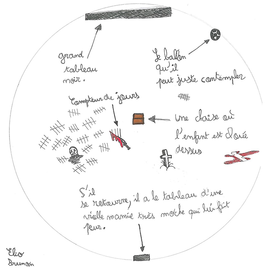 grand
tableau
noir.
Le ballon
qu'il
peut juste contempler
Compteur de jours
une chaise où
l'enfant est
dessus
S'il
se retourne, il a le tableau d'une
vieille mamie très moche qui lui fait
peur.
Cleo